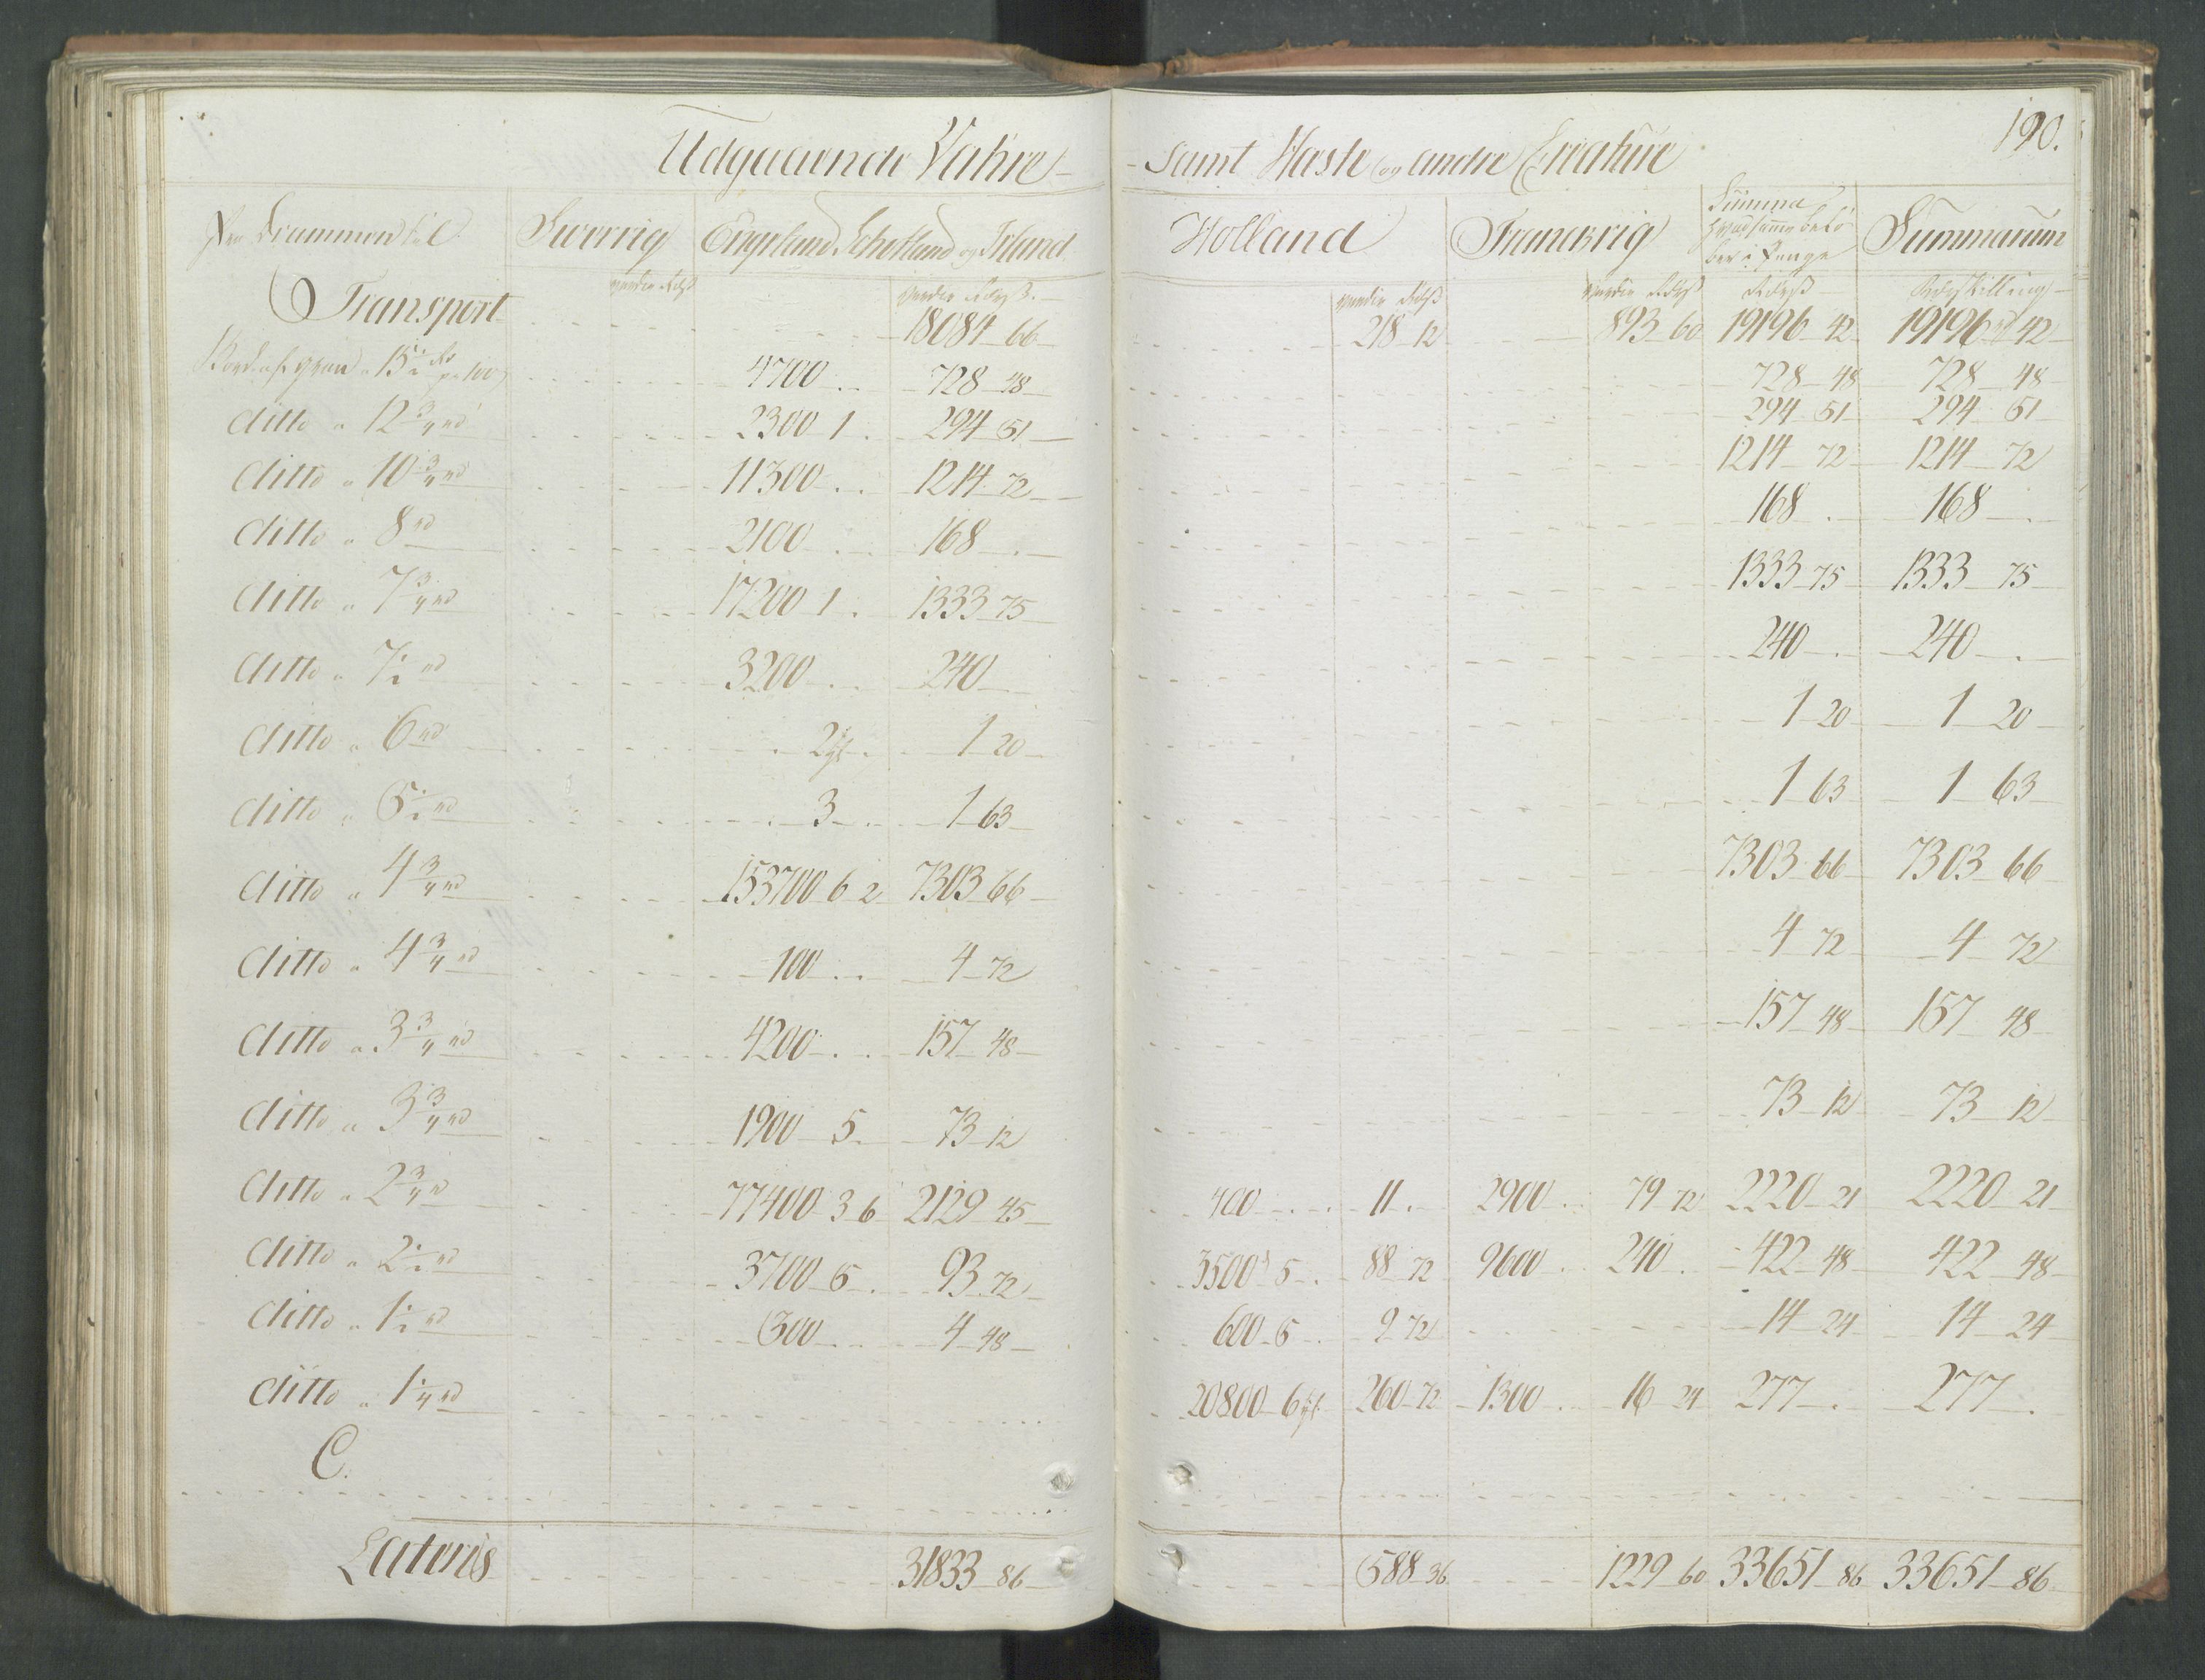 190.
Udgaaende Vahre - - samt Heste og andre Creature
Fra Drammen til Sverrig Engeland, Schotland og Irland Holland Franckrig Summa Summarum
Transport 18084 66 218 12 893 60 19196 42 19196 42
4700 728 48 728 48 728 48
ditto a 12 3/4 rd 2300 1 294 51 294 51 294 51
ditto a 10 3/4 rd 11300 1214 72 1214 72 1214 72
ditto a 8 rd 2100 168 168 168
ditto a 7 3/4 rd 17200 1 1333 75 1333 75 1333 75
ditto a 7 1/2 rd 3200 240 240 240
ditto a 6 rd 1 20 1 20 1 20
ditto a 5 1/2 rd 3 1 63 1 63 1 63
ditto a 4 3/4 rd 153700 6 2 7303 66 7303 66 7303 66
ditto a 4 3/4 rd 100 4 72 4 72 4 72
ditto a 3 3/4 rd 4200 157 48 157 48 157 48
ditto a 3 3/4 rd 1900 5 73 12 73 12 73 12
ditto a 2 3/4 rd 77400 3 6 2129 45 400 11 2900 79 72 2220 21 2220 21
ditto a 2 1/2 rd 3700 5 93 72 3500 5 88 72 9600 240 422 48 422 48
ditto a 1 1/2 rd 300 4 48 600 5 9 72 14 24 14 24
ditto a 1 1/4 rd 20800 6 260 72 1300 16 24 277 277
C.
Lateris 31833 86 588 36 1229 60 33651 86 33651 86